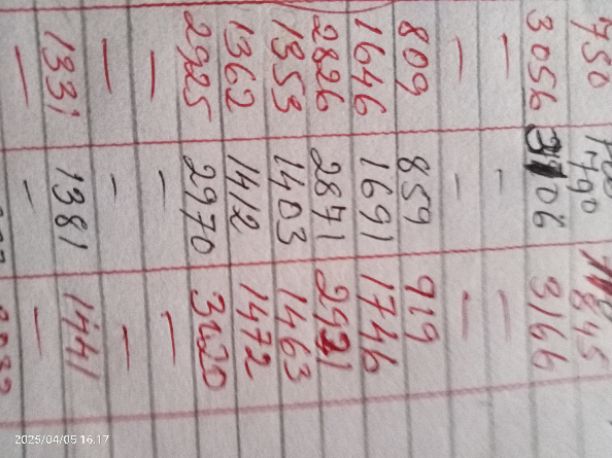 750 790 845
3056 3106 3166
— — —
— — —
809 859 919
1646 1691 1746
2826 2871 2921
1353 1403 1463
1362 1412 1472
2925 2970 3020
— — —
— — —
1331 1381 1441
— — —
2025/04/05 16:17